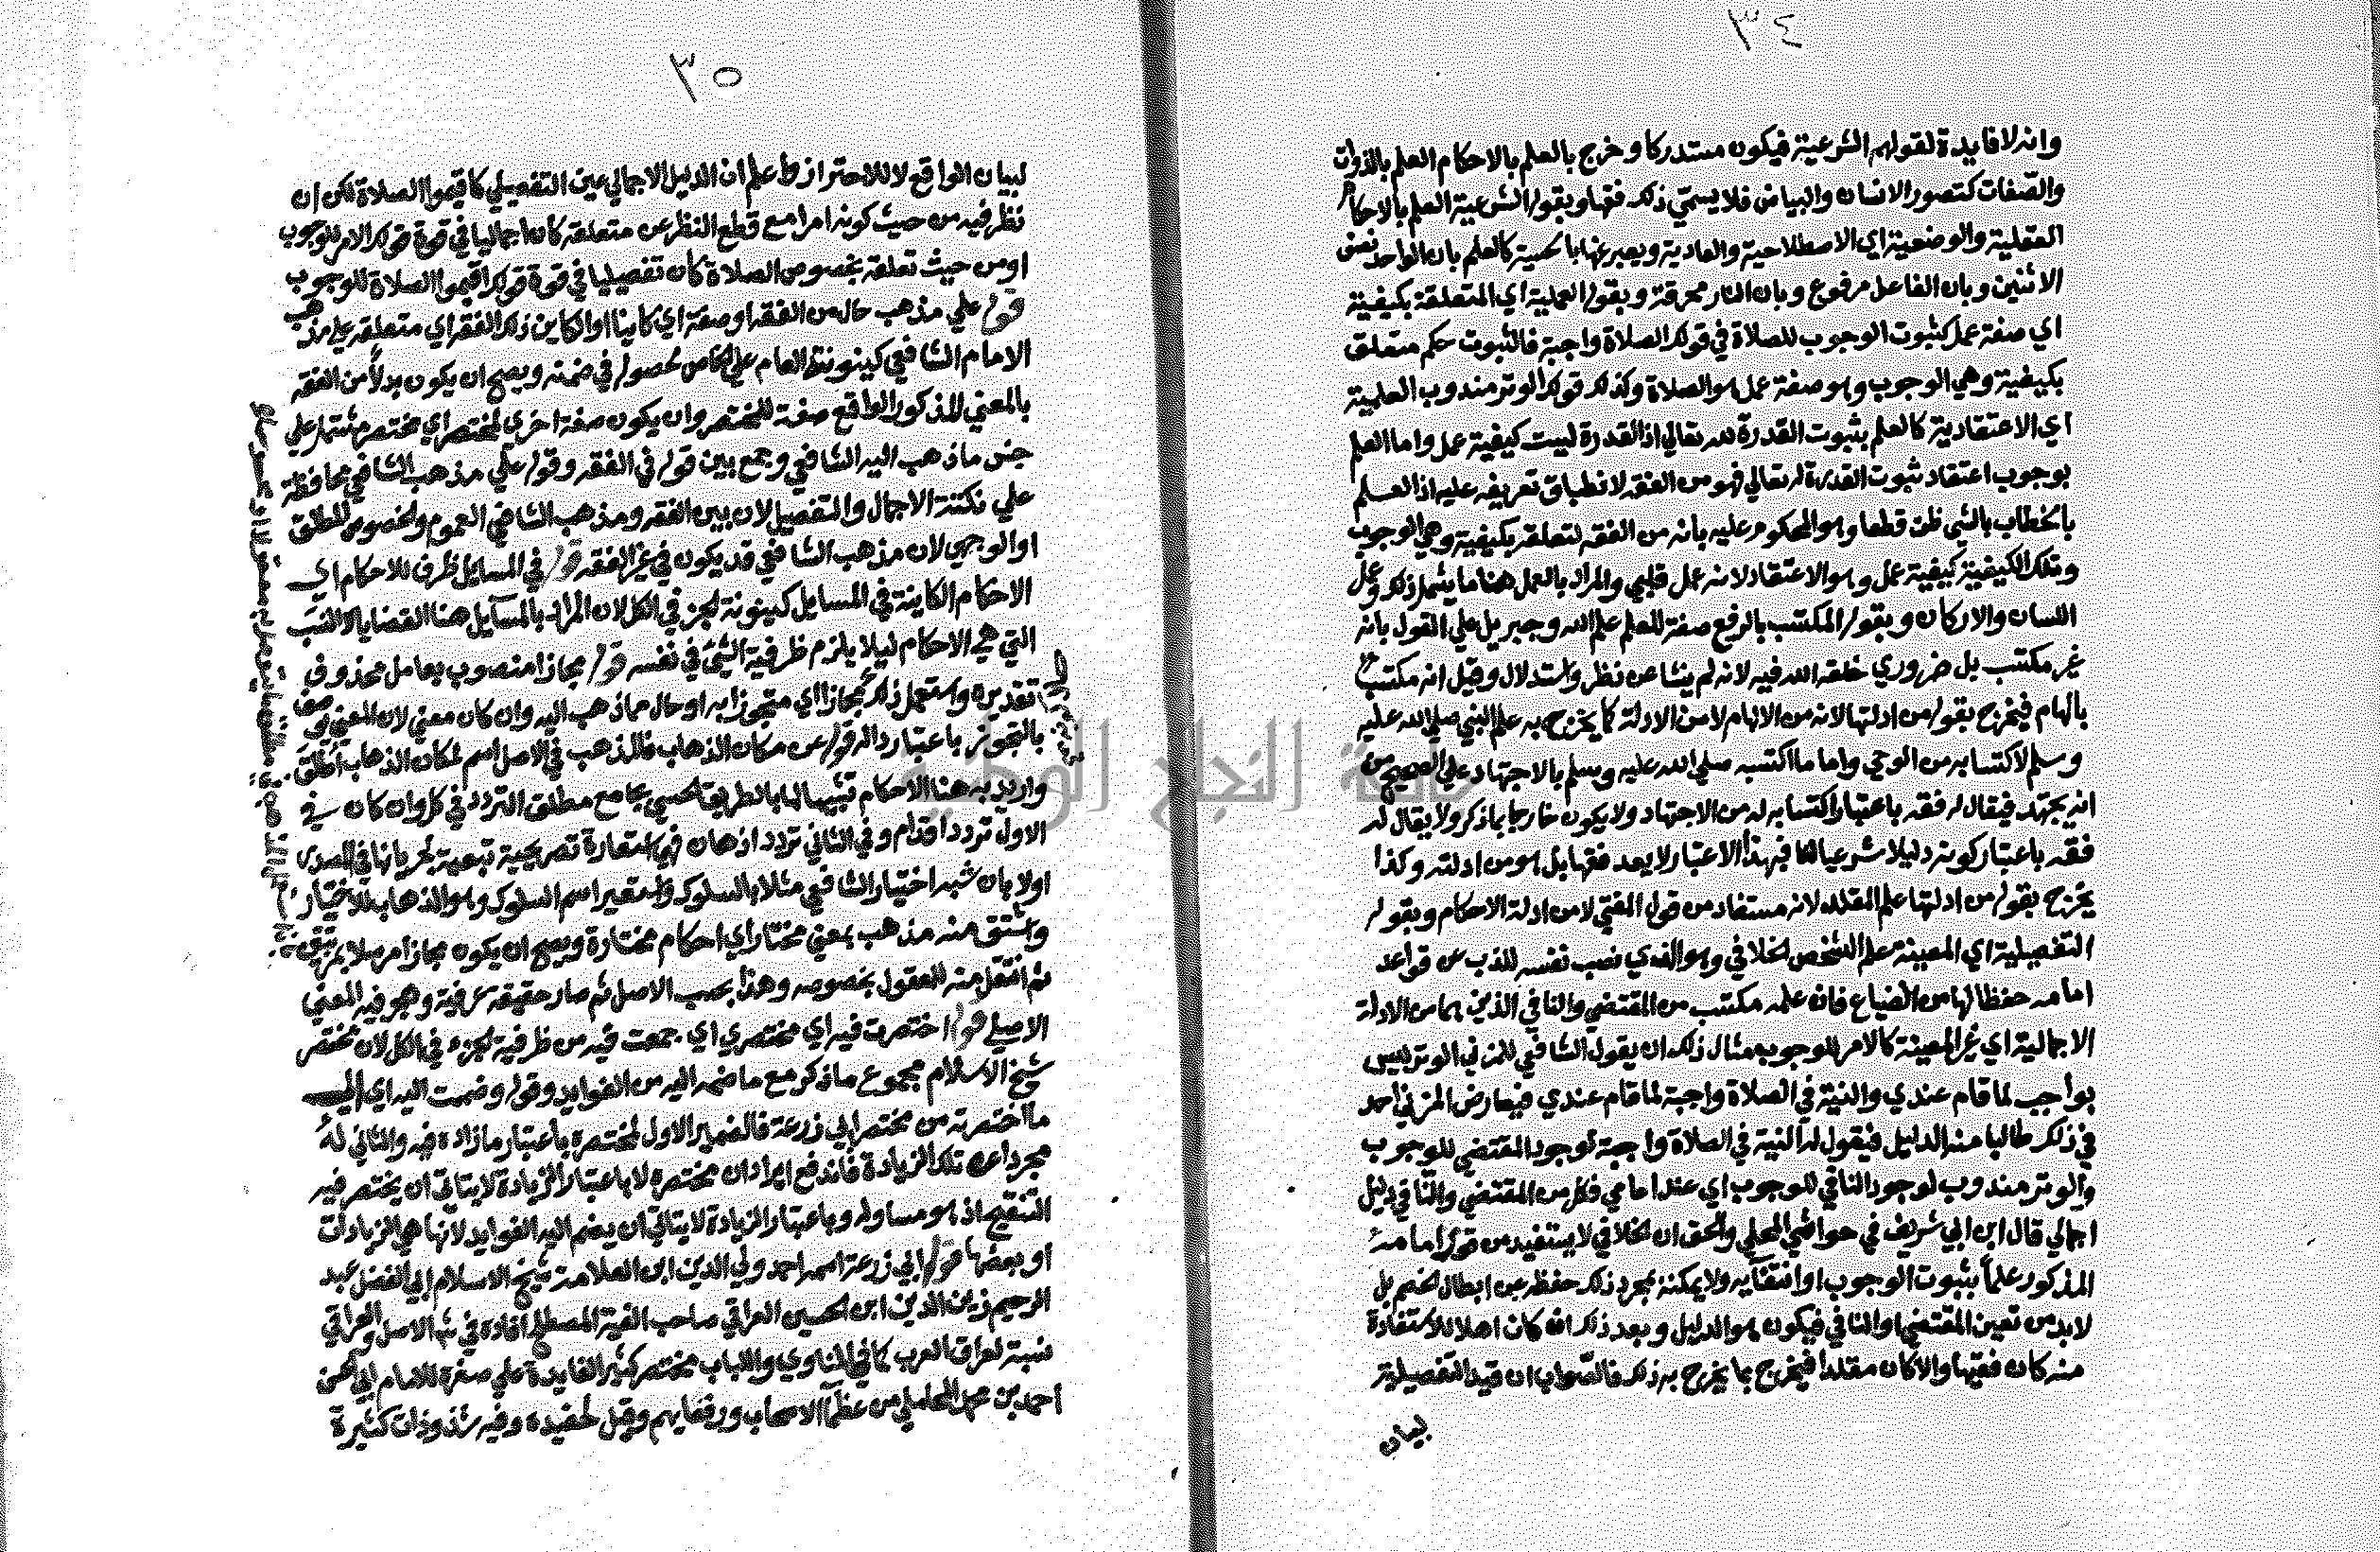 ٣٤
وانه لا فايدة لقولهم الشرعية فيكون مستدركا وخرج بالعلم بالاحكام العلم بالذوات
والصفات كتصور الانسان والبياض فلا يسمي ذلك فقها وبقوله الشرعية العلم بالاحكام
العقلية والوضعية اي الاصطلاحية والعادية ويعبر عنها بالحسية كالعلم بان الواحد نصف
الاثنين وبان الفاعل مرفوع وبان النار محرقة وبقوله العملية اي المتعلقة بكيفية
اي صفة عمل كثبوت الوجوب للصلاة في قولك الصلاة واجبة فالثبوت حكم متعلق
بكيفية وهي الوجوب وهو صفة عمل هو الصلاة وكذلك قولك الوتر مندوب العلمية
اي الاعتقادية كالعلم بثبوت القدرة لله تعالي اذ القدرة ليست كيفية عمل واما العلم
بوجوب اعتقاد ثبوت القدرة له تعالي فهو من الفقه لانطباق تعريفه عليه اذ العلم
بالخطاب بالشي ظن قطعا وهو المحكوم عليه بانه من الفقه لتعلقه بكيفية وهي الوجوب
وتلك الكيفية كيفية عمل وهو الاعتقاد لانه عمل قلبي والمراد بالعمل هنا ما يشمل ذلك وعمل
اللسان والاركان وبقوله المكتسب بالرفع صفة للعلم علم الله وجبريل علي القول بانه
غير مكتسب بل ضروري خلقه الله فيه لانه لم ينشا عن نظر واستدلال وقيل انه مكتسب
بالهام فيخرج بقوله من ادلتها لانه من الالهام لا من الادلة كما يخرج به علم النبي صلي الله عليه
وسلم لاكتسابه من الوحي واما ما اكتسبه صلي الله عليه وسلم بالاجتهاد علي الصحيح من
انه يجتهد فيقال له فقه باعتبار اكتسابه له من الاجتهاد ولا يكون خارجا بما ذكر ولا يقال له
فقه باعتبار كونه دليلا شرعيا لنا فبهذا الاعتبار لا يعد فقها بل هو من ادلته وكذا
يخرج بقوله من ادلتها علم المقلد لانه مستفاد من قول المفتي لا من ادلة الاحكام وبقوله
التفصيلية اي المعينة علم الشخص الخلافي وهو الذي نصب نفسه للذب عن قواعد
امامه حفظا لها من الضياع فان علمه مكتسب من المقتضي والنافي الذين هما من الادلة
الاجمالية اي غير المعينة كالامر للوجوب مثال ذلك ان يقول الشافعي للمزني الوتر ليس
بواجب لما قام عندي والنية في الصلاة واجبة لما قام عندي فيعارض المزني احد
في ذلك طالبا منه الدليل فيقول له النية في الصلاة واجبة لوجود المقتضي للوجوب
والوتر مندوب لوجود النافي للوجوب اي عند امامي فكل من المقتضي والنافي دليل
اجمالي قال ابن ابي شريف في حواشي المحلي والحق ان الخلافي لا يستفيد من قول امامه
المذكور علما بثبوت الوجوب او انتفآيه ولا يمكنه بمجرد ذلك حفظه عن ابطال الخصم بل
لابد من تعين المقتضي او النافي فيكون هو الدليل وبعد ذلك ان كان اهلا للاستفادة
منه كان فقيها والا كان مقلدا فيخرج بما يخرج به ذلك فالصواب ان قيد التفصيلية
لبيان
٣٥
لبيان الواقع لا للاحتراز واعلم ان الدليل الاجمالي عين التفصيلي كاقيموا الصلاة لكن ان
نظر فيه من حيث كونه امرا مع قطع النظر عن متعلقه كان اجماليا في قوة قولك الامر للوجوب
او من حيث تعلقه بخصوص الصلاة كان تفصيليا في قوة قولك اقيموا الصلاة للوجوب
قوله علي مذهب حال من الفقه او صفة اي كاينا او الكاين ذلك الفقه اي متعلقه علي مذهب
الامام الشافعي كينونة العام علي الخاص لحصوله في ضمنه ويصح ان يكون بدلا من الفقه
بالمعني المذكور الواقع صفة للمختصر وان يكون صفة اخري لمختصر اي مختصر مشتمل علي
جنس ما ذهب اليه الشافعي وجمع بين قوله في الفقه وقوله علي مذهب الشافعي محافظة
علي نكتة الاجمال والتفصيل لان بين الفقه ومذهب الشافعي العموم والخصوص المطلق
او الوجهي لان مذهب الشافعي قد يكون في غير الفقه قوله في المسايل ظرف للاحكام اي
الاحكام الكاينة في المسايل كينونة الجزء في الكل لان المراد بالمسآيل هنا القضايا لا النسب
التي هي الاحكام ليلا يلزم ظرفية الشيء في نفسه قوله مجازا منصوب بعامل محذوف
تقديره واستعمل ذلك مجازا اي متجوزا به او حال مما ذهب اليه وان كان معني لان المعني يوصف
بالتجوز باعتبار داله قوله عن مكان الذهاب فالمذهب في الاصل اسم لمكان الذهاب اطلق
واريد به هنا الاحكام تشبيها لها بالطريق الحسي بجامع مطلق التردد في كل وان كان في
الاول تردد اقدام وفي الثاني تردد اذهان فهي استعارة تصريحية تبعية لجريانها في المصدر
اولا بان شبه اختيار الشافعي مثلا بالسلوك واستعير اسم السلوك وهو الذهاب للاختيار
واشتق منه مذهب بمعني مختار اي احكام مختارة ويصح ان يكون مجازا مرسلا بمرتبتين
ثم انتقل منه للمعقول بخصوصه وهذا بحسب الاصل ثم صار حقيقة عرفية وهجر فيه المعني
الاصلي قوله اختصرت فيه اي مختصري اي جمعت فيه من ظرفية الجزء في الكل لان مختصر
شيخ الاسلام مجموع ما ذكر مع ما ضمه اليه من الفوايد وقوله وضممت اليه اي الي
ما اختصرته من مختصر ابي زرعة فالضمير الاول لمختصره باعتبار ما زاده فيه والثاني له
مجردا عن تلك الزيادة فاندفع ايراد ان مختصره لا باعتبار الزيادة لا يتاتي ان يختصر فيه
التنقيح اذ هو مساو له وباعتبار الزيادة لا يتاتي ان يضم اليه الفوايد لانها هي الزيادات
او بعضها قوله ابي زرعة اسمه احمد ولي الدين ابن العلامة شيخ الاسلام ابي الفضل عبد
الرحيم زين الدين ابن الحسين العراقي صاحب الفية المصطلح افاده في شرح الاصل والعراقي
نسبة لعراق العرب كما في المناوي واللباب مختصر كثير الفايدة علي صغره للامام ابي الحسن
احمد بن محمد المحاملي من عظمآ الاصحاب ورفعايهم وقيل لحفيده وفيه شذوذات كثيرة
جامعة النجاح الوطنية